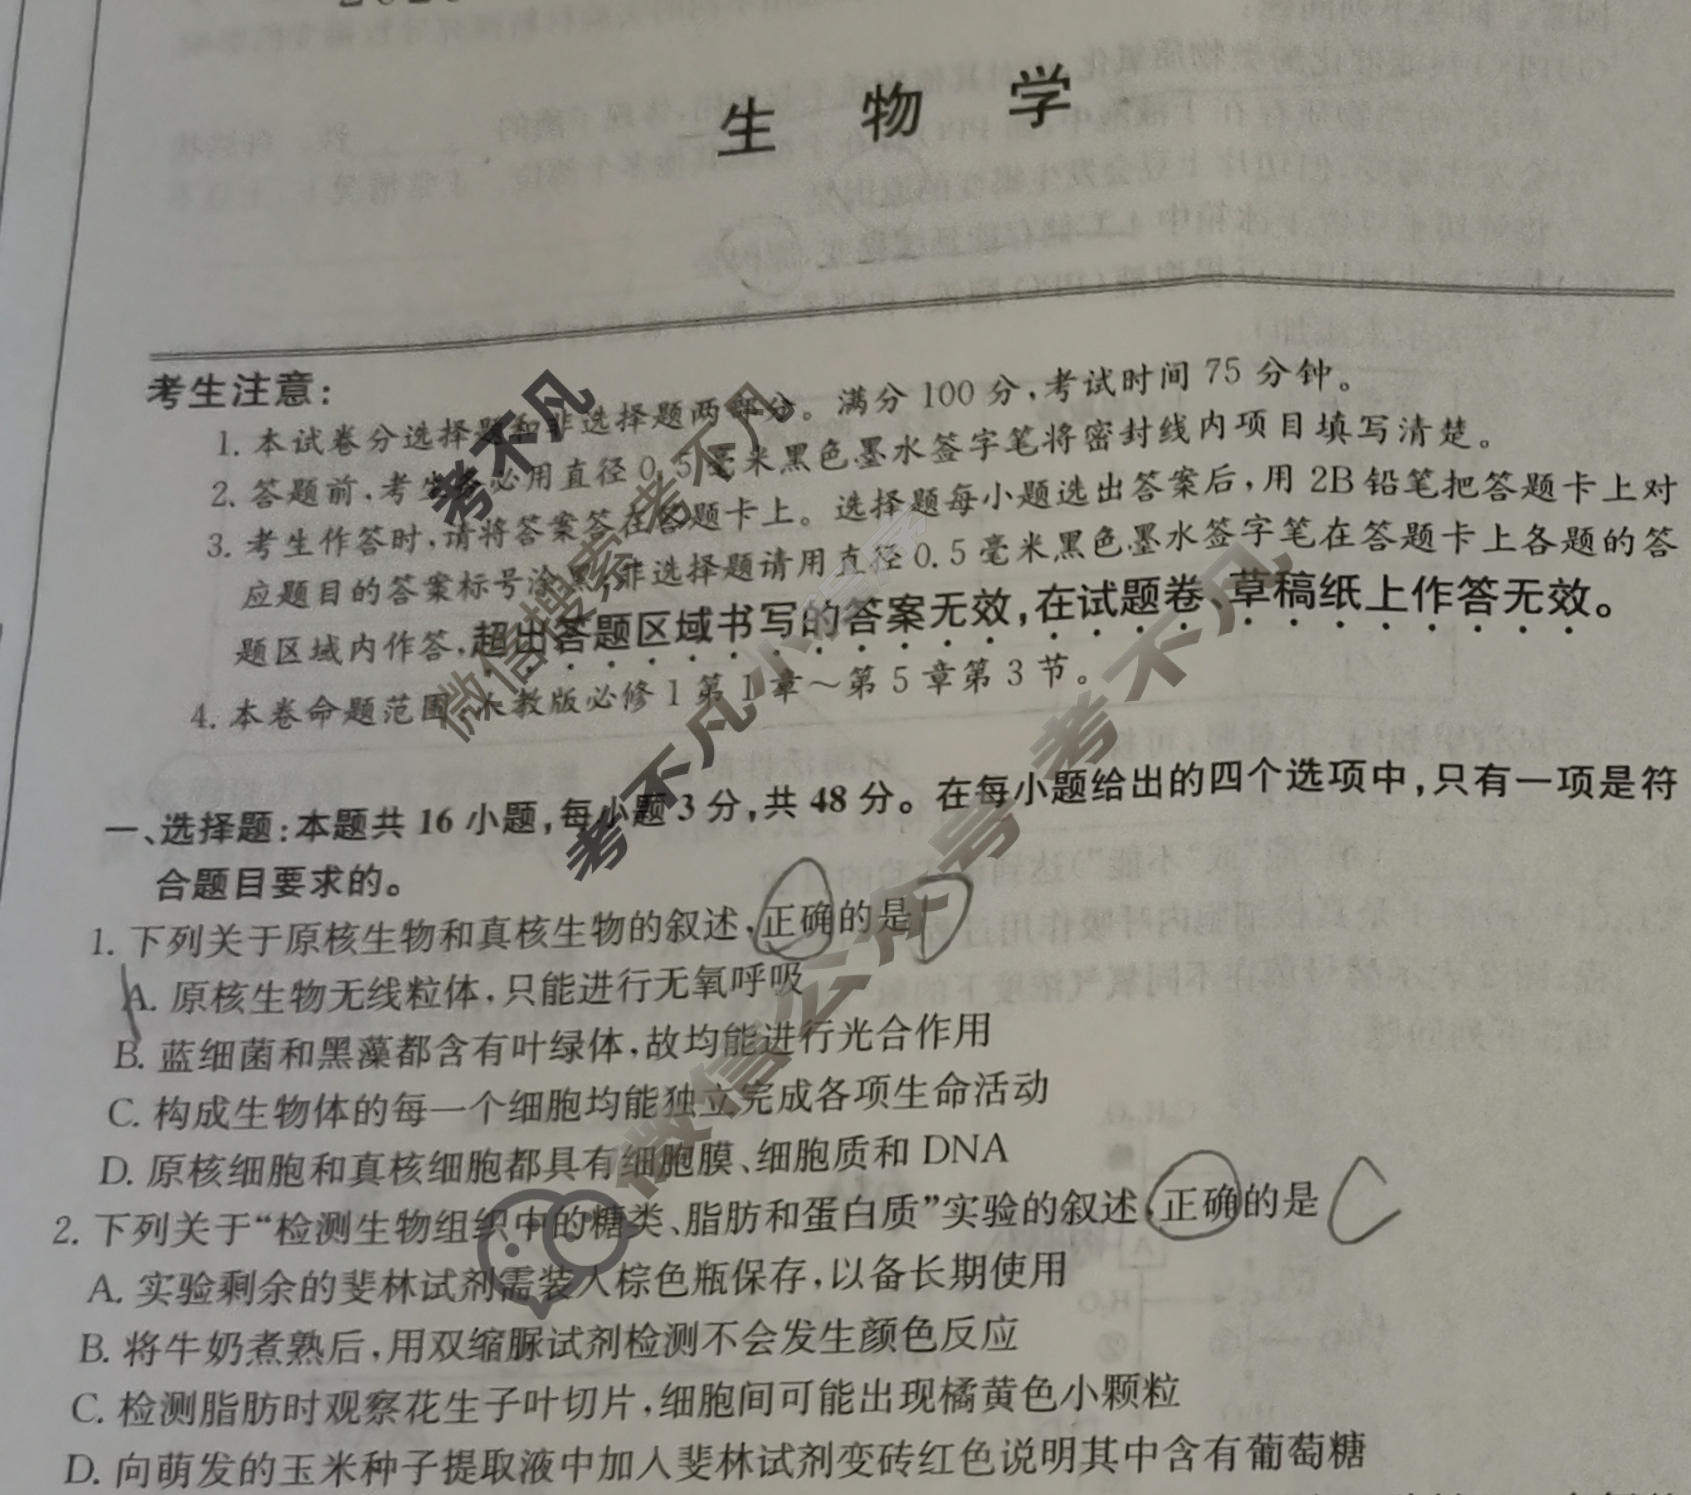 生物学
考生注意:
1. 本试卷分选择题和非选择题两部分。满分 100 分,考试时间 75 分钟。
2. 答题前,考生务必用直径 0.5 毫米黑色墨水签字笔将密封线内项目填写清楚。
3. 考生作答时,请将答案答在答题卡上。选择题每小题选出答案后,用 2B 铅笔把答题卡上对
应题目的答案标号涂黑;非选择题请用直径 0.5 毫米黑色墨水签字笔在答题卡上各题的答
题区域内作答,超出答题区域书写的答案无效,在试题卷、草稿纸上作答无效。
4. 本卷命题范围:人教版必修 1 第 1 章～第 5 章第 3 节。
一、选择题:本题共 16 小题,每小题 3 分,共 48 分。在每小题给出的四个选项中,只有一项是符
合题目要求的。
1. 下列关于原核生物和真核生物的叙述,正确的是 D
A. 原核生物无线粒体,只能进行无氧呼吸
B. 蓝细菌和黑藻都含有叶绿体,故均能进行光合作用
C. 构成生物体的每一个细胞均能独立完成各项生命活动
D. 原核细胞和真核细胞都具有细胞膜、细胞质和 DNA
2. 下列关于“检测生物组织中的糖类、脂肪和蛋白质”实验的叙述,正确的是 C
A. 实验剩余的斐林试剂需装入棕色瓶保存,以备长期使用
B. 将牛奶煮熟后,用双缩脲试剂检测不会发生颜色反应
C. 检测脂肪时观察花生子叶切片,细胞间可能出现橘黄色小颗粒
D. 向萌发的玉米种子提取液中加入斐林试剂变砖红色说明其中含有葡萄糖
考不凡
微信搜索考不凡
考不凡小程序
微信公众号考不凡